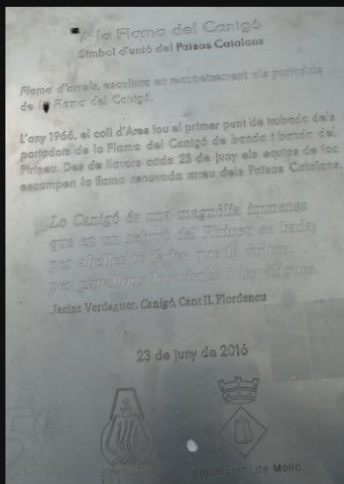 A la Flama del Canigó
Símbol d'unió del Països Catalans
Flama d'arrels, escultura en reconeixement als portadors
de la Flama del Canigó.
L'any 1966, el coll d'Ares fou el primer punt de trobada dels
portadors de la Flama del Canigó de banda i banda del
Pirineu. Des de llavors cada 23 de juny els equips de foc
escampen la flama renovada arreu dels Països Catalans.
Lo Canigó és una magnòlia immensa
que en un rebrot del Pirineu se bada;
per abelles té fades que la volten,
per papallons los cisnes i les àligues.
Jacint Verdaguer, Canigó, Cant II. Flordeneu
23 de juny de 2016
Ajuntament de Molló